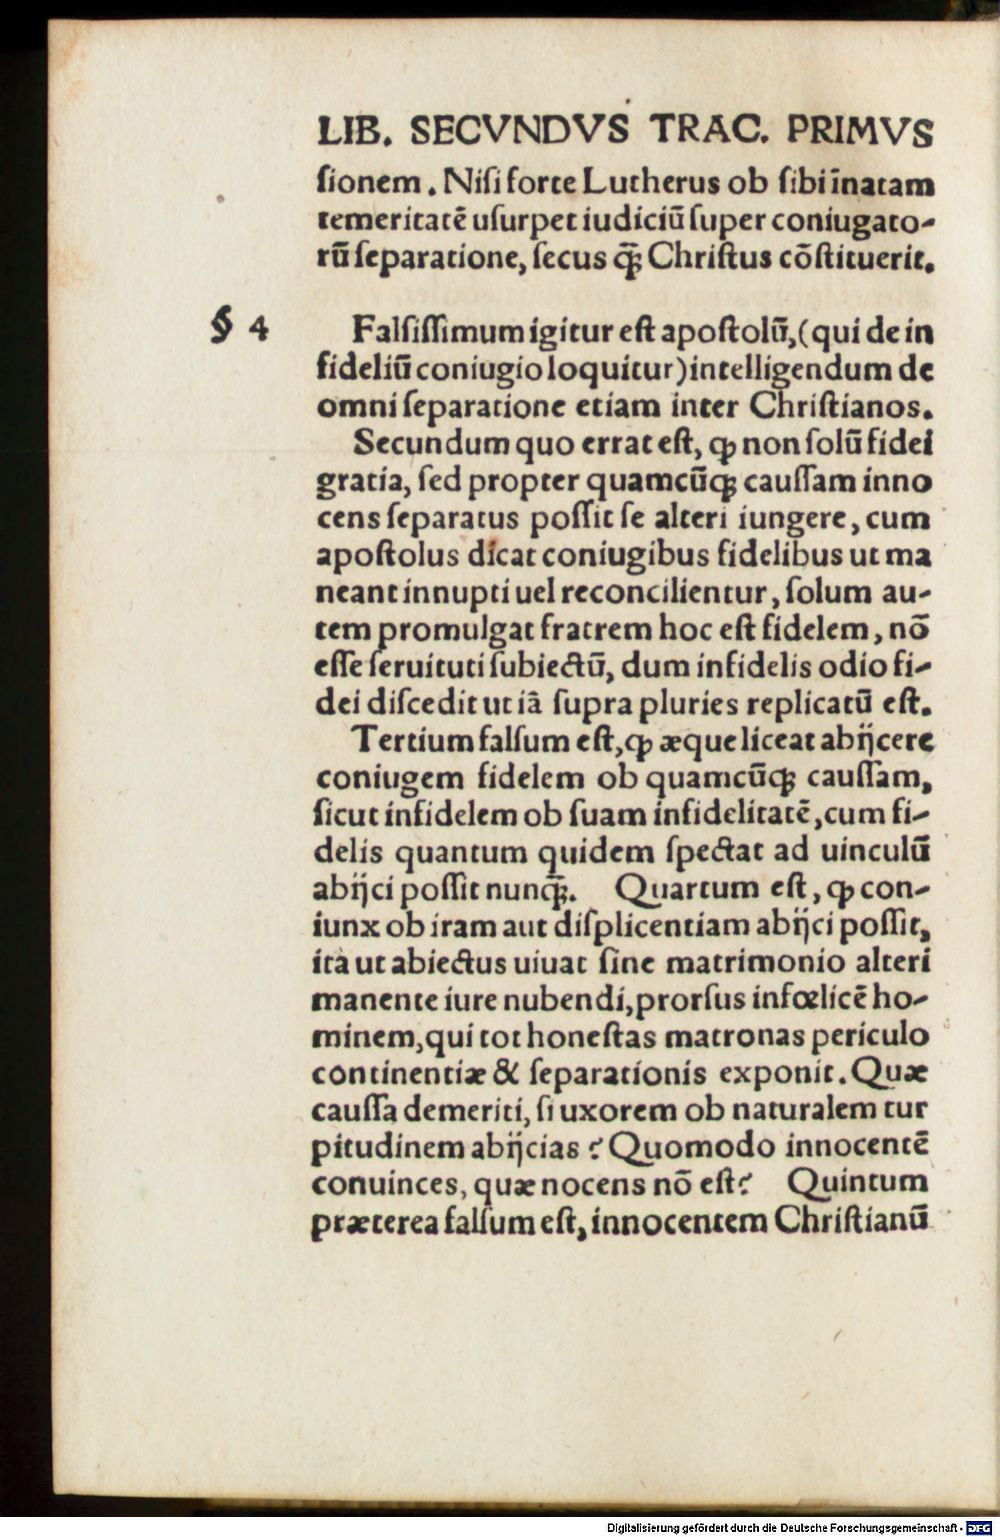 LIB. SECVNDVS TRAC. PRIMVS
ſionem. Niſi forte Lutherus ob ſibi īnatam
temeritatē uſurpet iudiciū ſuper coniugato-
rū ſeparatione, ſecus qꝫ̄ Chriſtus cōſtituerit.
§ 4
Falſiſſimum igitur eſt apoſtolū, (qui de in
fideliū coniugio loquitur) intelligendum de
omni ſeparatione etiam inter Chriſtianos.
Secundum quo errat eſt, ꝙ non ſolū fidei
gratia, ſed propter quamcūqꝫ cauſſam inno
cens ſeparatus poſſit ſe alteri iungere, cum
apoſtolus dicat coniugibus fidelibus ut ma
neant innupti uel reconcilientur, ſolum au-
tem promulgat fratrem hoc eſt fidelem, nō
eſſe ſeruituti ſubiectū, dum infidelis odio fi-
dei diſcedit ut iā ſupra pluries replicatū eſt.
Tertium falſum eſt, ꝙ æque liceat abijcere
coniugem fidelem ob quamcūqꝫ cauſſam,
ſicut infidelem ob ſuam infidelitatē, cum fi-
delis quantum quidem ſpectat ad uinculū
abijci poſſit nunqꝫ̄. Quartum eſt, ꝙ con-
iunx ob iram aut diſplicentiam abijci poſſit,
ita ut abiectus uiuat ſine matrimonio alteri
manente iure nubendi, prorſus infœlicē ho-
minem, qui tot honeſtas matronas periculo
continentiæ & ſeparationis exponit. Quæ
cauſſa demeriti, ſi uxorem ob naturalem tur
pitudinem abijcias? Quomodo innocentē
conuinces, quæ nocens nō eſt? Quintum
præterea falſum eſt, innocentem Chriſtianū
Digitalisierung gefördert durch die Deutsche Forschungsgemeinschaft - DFG